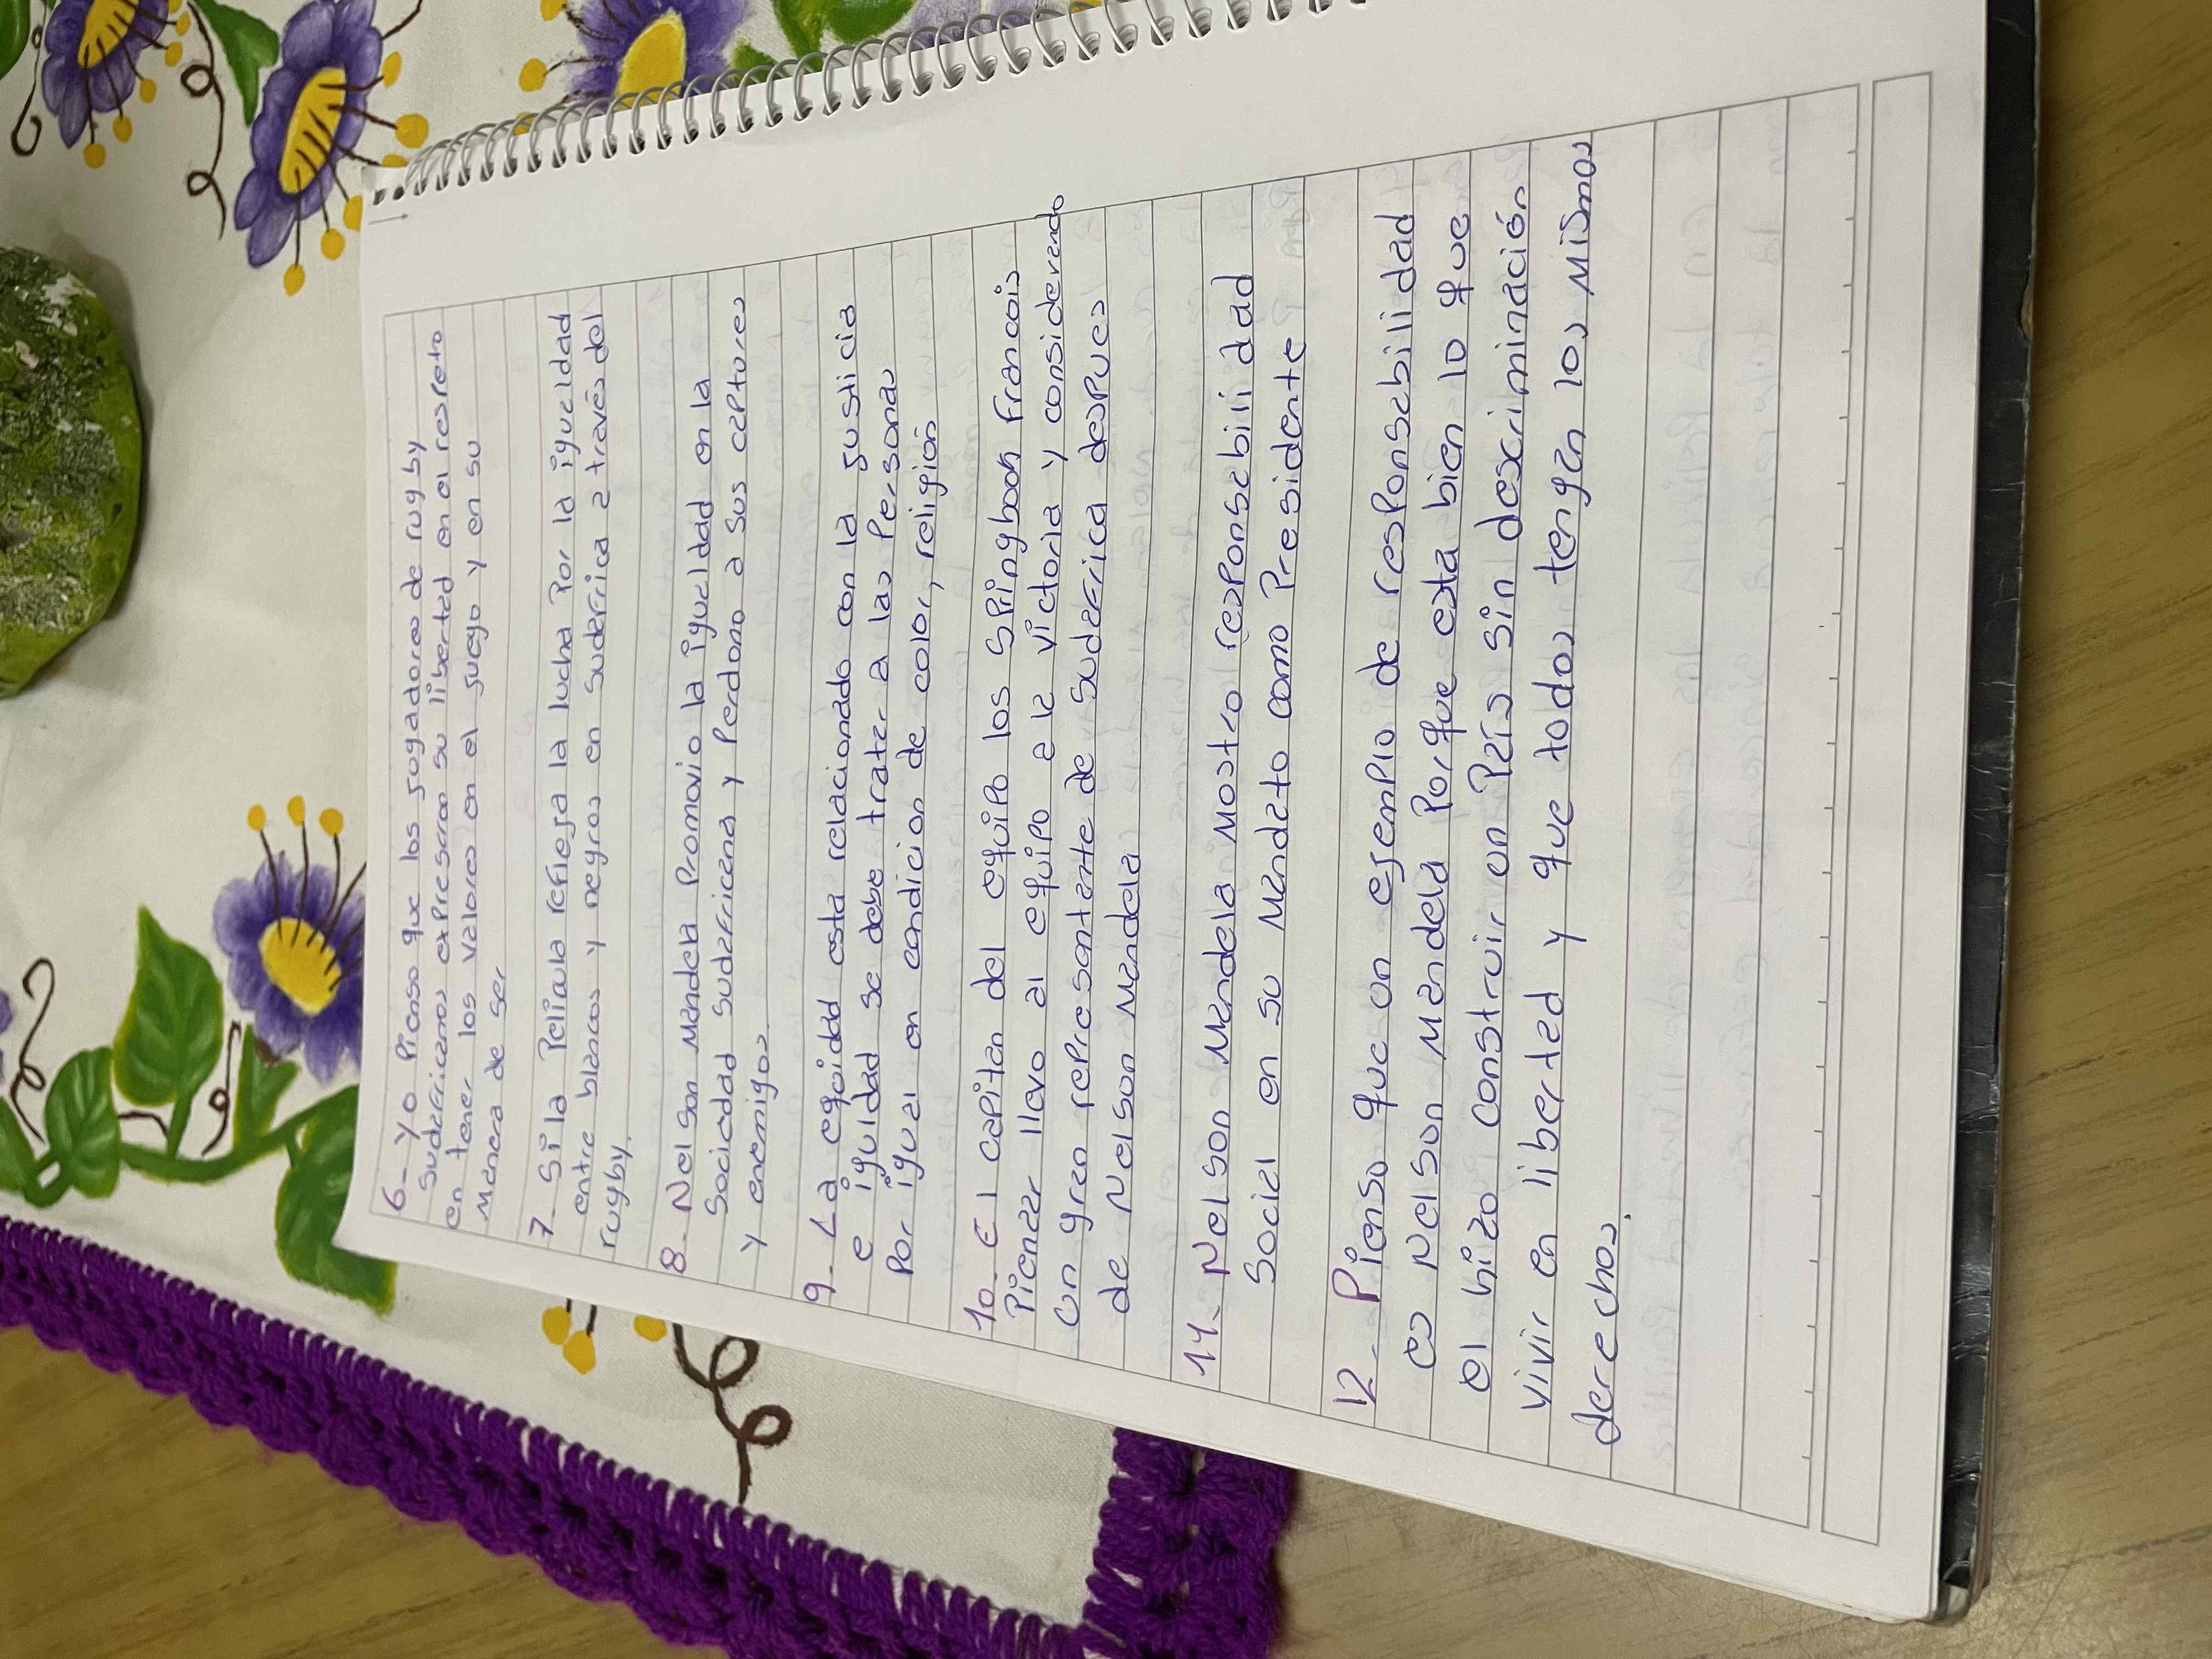 6- Yo Pienso que los jugadores de rugby
sudafricanos expresaron su libertad en el respeto
en tener los valores en el juego y en su
Manera de ser
7- Si la Pelicula refleja la lucha Por la igualdad
entre blancos y negros en sudafrica a través del
rugby.
8- Nelson Mandela Promovio la igualdad en la
Sociedad sudafricana y Perdono a sus captores
y enemigos
9- La equidad esta relacionado con la justicia
e igualdad se debe tratar a las Personas
Por igual en condicion de color, religión
10- El capitan del equipo los Spingbook Francois
Pienaar llevo al equipo a la victoria y considerando
un gran representante de Sudafrica despues
de Nelson Mandela
11- Nelson Mandela Mostro responsabilidad
Social en su Mandato como Presidente
12- Pienso que un ejemplo de responsabilidad
es Nelson Mandela Porque esta bien lo que
el hizo construir un País sin descriminación
vivir en libertad y que todos tengan los mismos
derechos.